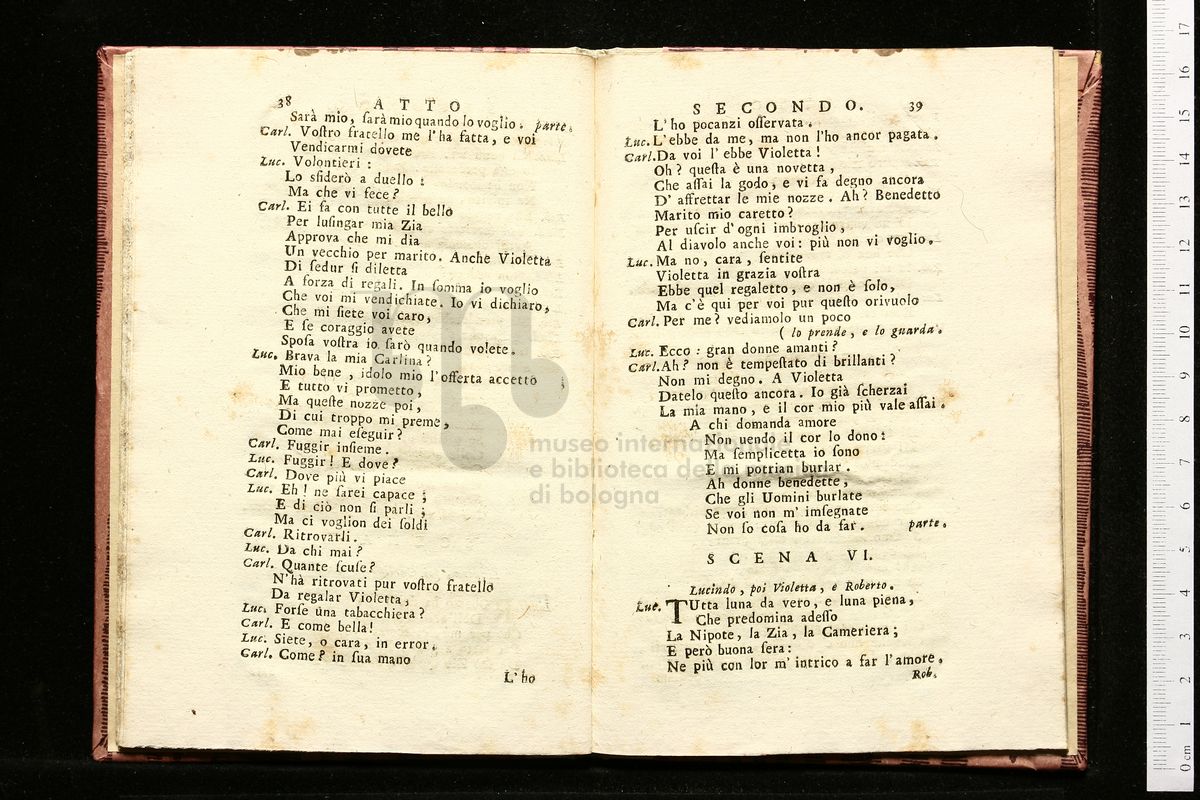 38 ATTO
Sarà mio, ſarà mio quando lo voglio. parte.
Carl. Voſtro fratello me l'ha fatta, e voi
Vendicarmi dovete
Luc. Volontieri :
Lo sfiderò a duello :
Ma che vi fece?
Carl. Ei fa con tutte il bello
Per luſingar mia Zia
Approva che mi dia
Un vecchio per marito. Anche Violetta
Di ſedur ſi diletta
A forza di regali. In ſomma io voglio
Che voi mi vendichiate. Io vi dichiaro,
Che mi ſiete voi caro,
E ſe coraggio avete
Spoſa voſtra io ſarò quando volete.
Luc. Brava la mia Carlina?
Mio bene, idolo mio l'offerta accetto ;
E tutto vi prometto,
Ma queſte nozze poi,
Di cui troppo mi preme,
Come mai eſeguir?
Carl. Fuggir inſieme.
Luc. Fuggir! E dove?
Carl. Dove più vi piace
Luc. Eh! ne ſarei capace ;
E di ciò non ſi parli ;
Ma ci voglion dei ſoldi
Carl. Ritrovarli.
Luc. Da chi mai?
Carl. Quante ſcuſe?
N'hà ritrovati pur voſtro fratello
Da regalar Violetta,
Luc. Forſe una tabacchiera?
Carl. E come bella!
Luc. Siete, o cara, in error.
Carl. Come? in ſua mano
L'ho
SECONDO. 39
L'ho pocanzi oſſervata.
Luc. L'ebbe da me, ma non l'ho ancor pagata.
Carl. Da voi l'ebbe Violetta!
Oh? queſta è una novetta,
Che aſſai la godo, e vi fa degno ancora
D'affrettar le mie nozze. Ah? Benedetto
Marito mio caretto?
Per uſcir d'ogni imbroglio,
Al diavolo anche voi: più non vi voglio.
Luc. Ma no, cara, ſentite
Violetta in grazia voſtra
Ebbe quel regaletto, e non è ſolo,
Ma c'è qui per voi pur queſto orivuolo
Carl. Per me? vediamolo un poco
( lo prende, e lo guarda.
Luc. Ecco : gran donne amanti?
Carl. Ah? non è tempeſtato di brillanti?
Non mi degno. A Violetta
Datelo queſto ancora. Io già ſcherzai
La mia mano, e il cor mio più vale aſſai.
A chi domanda amore
Non uendo il cor lo dono:
Ma ſemplicetta io ſono
E mi potrian burlar.
Ah donne benedette,
Che gli Uomini burlate
Se voi non m'imſegnate
Non ſo coſa ho da far. parte.
SCENA VI.
Lucindo, poi Violetta, e Roberto.
Luc. TUtta luna da vero, e luna piena,
Che predomina adeſſo
La Nipote, la Zia, la Cameriera ;
E però buona ſera:
Ne più con lor m'intrico a far l'amore.
Rob.
museo internazionale
e biblioteca de
di bologna
0 cm 1 2 3 4 5 6 7 8 9 10 11 12 13 14 15 16 17